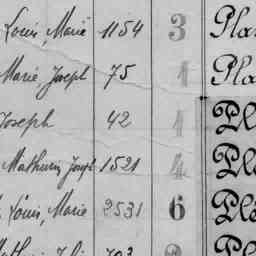 Louis, Marie 1154 3 Pla
Marie Joseph 75 1 Pla
Joseph 42 1 Plé
Mathurin Joseph 1521 4 Plé
Louis, Marie 2531 6 Plé